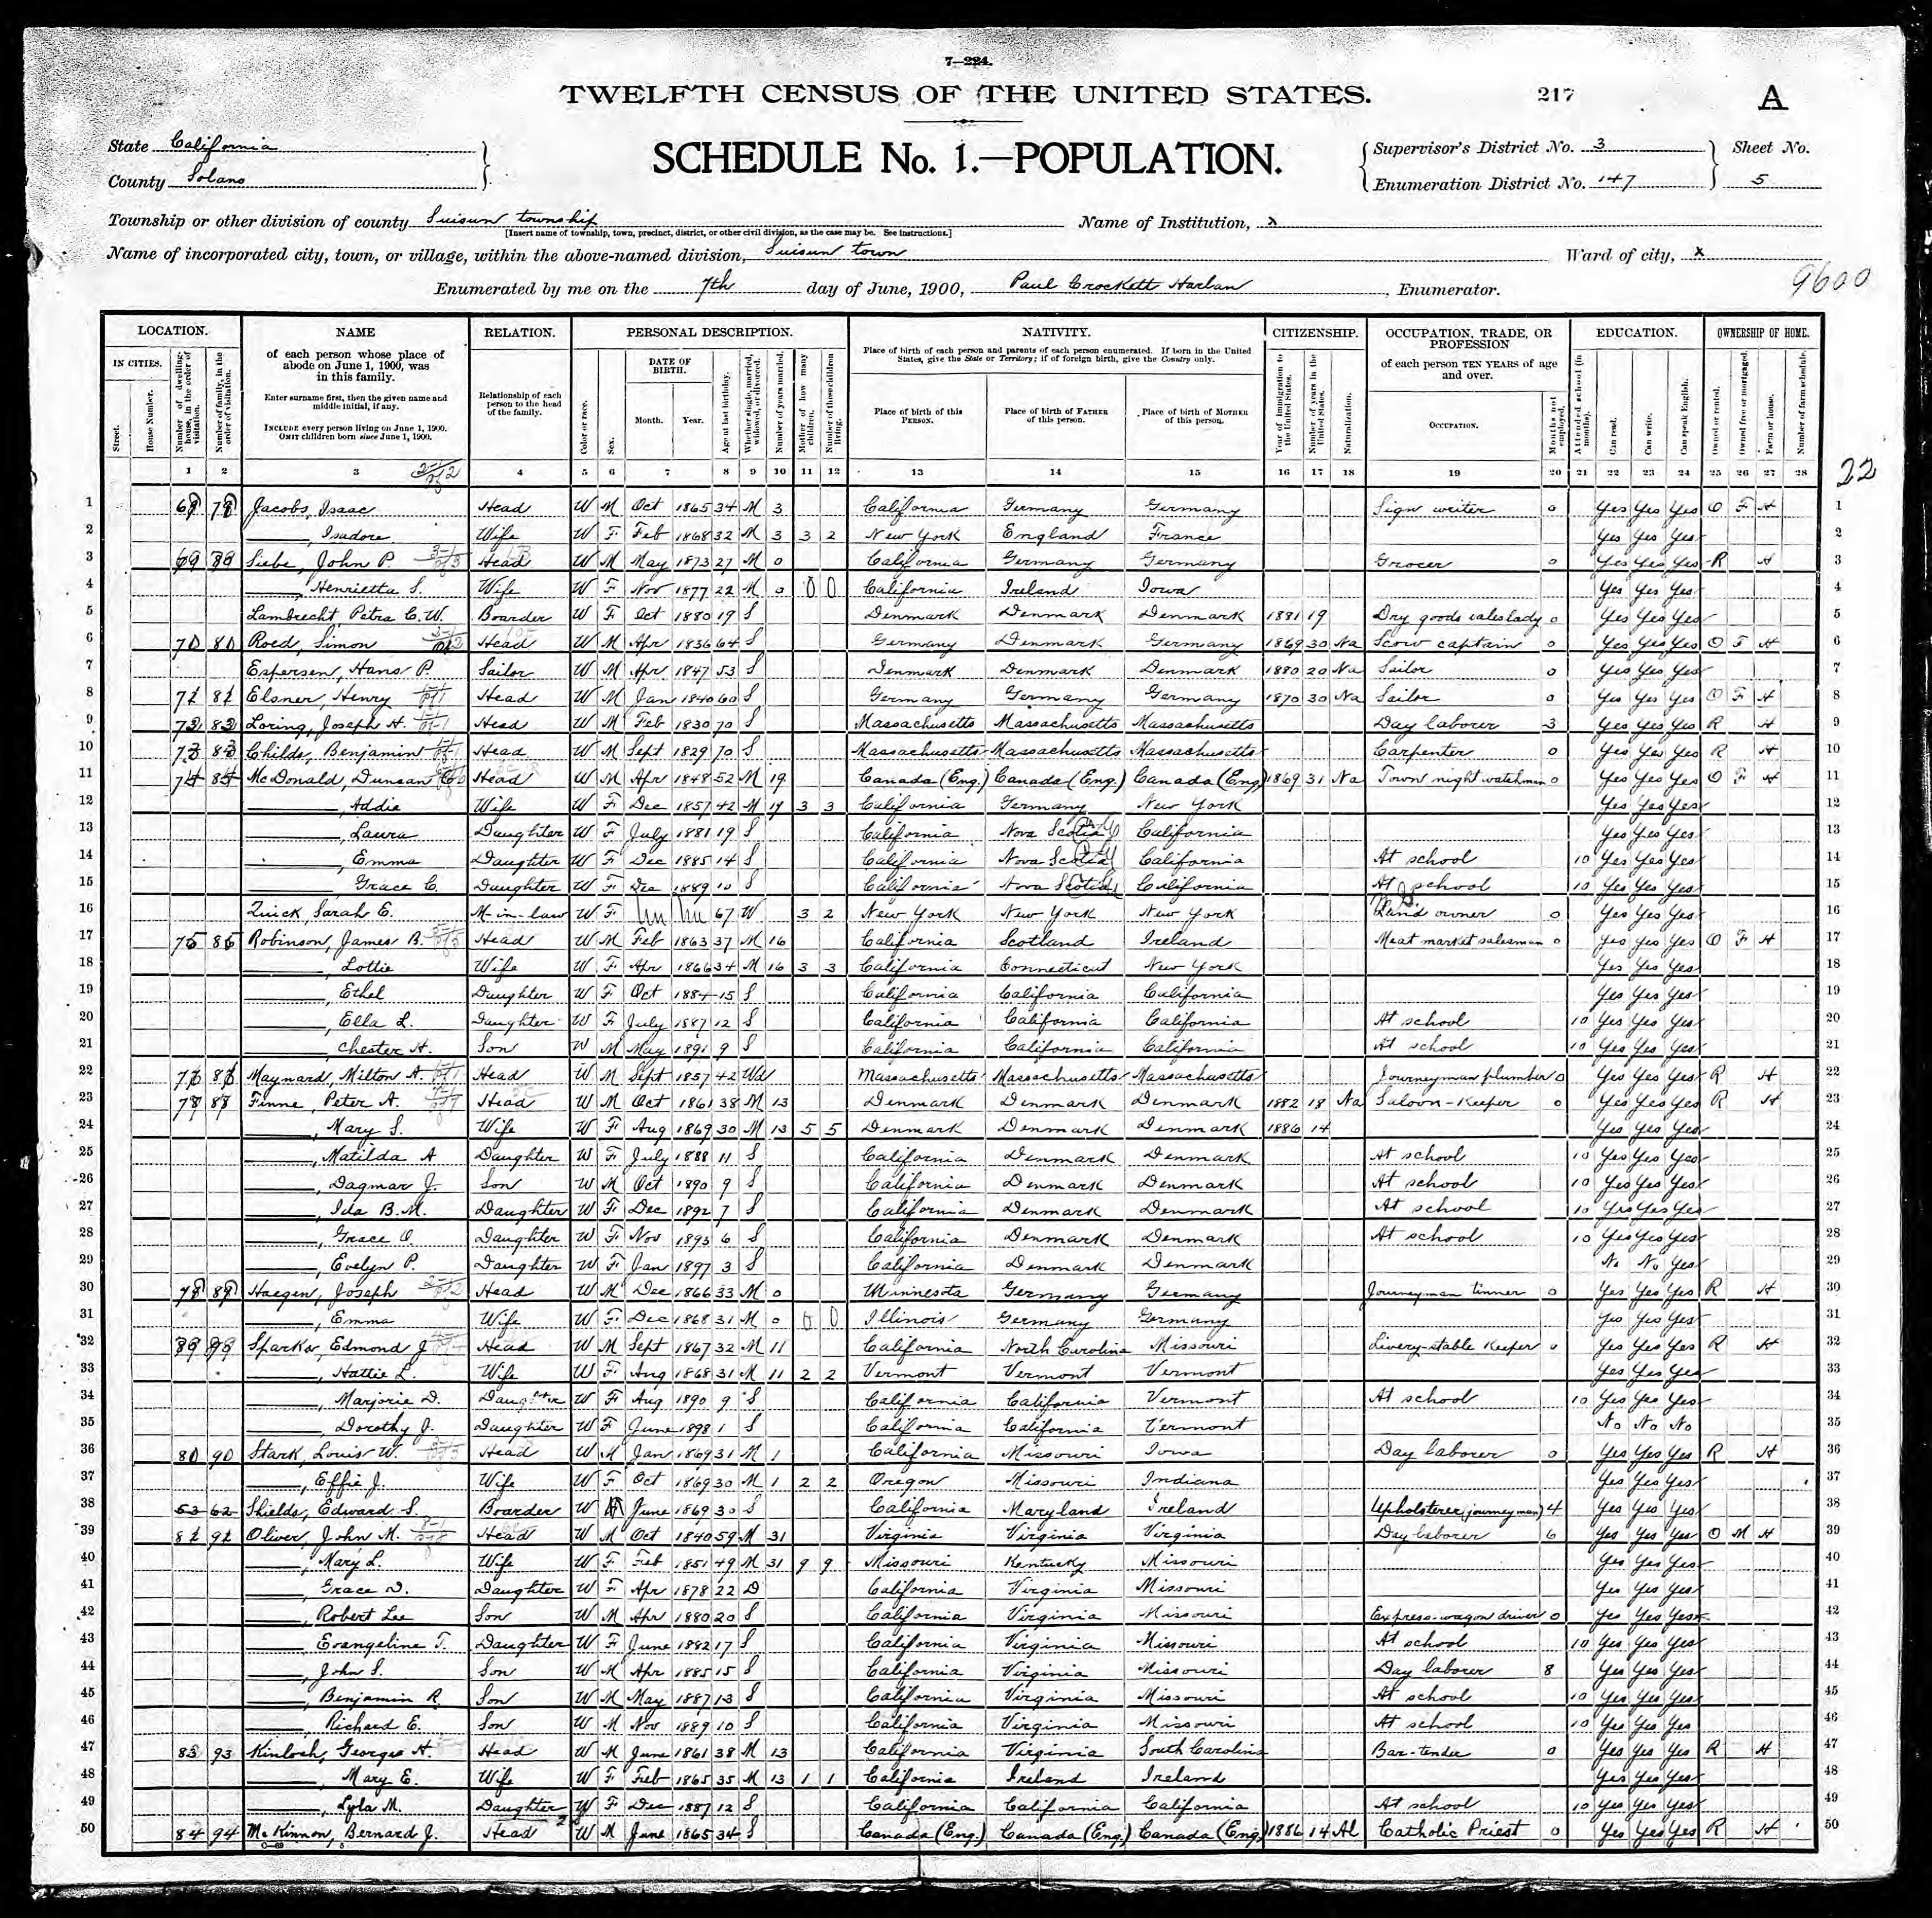 7—224.
TWELFTH CENSUS OF THE UNITED STATES.
217
A
State California
County Solano
SCHEDULE No. 1.—POPULATION.
Supervisor's District No. 3
Enumeration District No. 147
Sheet No.
5
Township or other division of county Suisun township
[Insert name of township, town, precinct, district, or other civil division, as the case may be. See instructions.]
Name of Institution, x
Name of incorporated city, town, or village, within the above-named division, Suisun town
Ward of city, x
Enumerated by me on the 7th day of June, 1900, Paul Crockett Harlan, Enumerator.
9600
LOCATION. NAME RELATION. PERSONAL DESCRIPTION. NATIVITY. CITIZENSHIP. OCCUPATION, TRADE, OR PROFESSION EDUCATION. OWNERSHIP OF HOME.
IN CITIES. Street. House Number. Number of dwelling-house, in the order of visitation. Number of family, in the order of visitation.
of each person whose place of abode on June 1, 1900, was in this family.
Enter surname first, then the given name and middle initial, if any.
INCLUDE every person living on June 1, 1900. OMIT children born since June 1, 1900.
Relationship of each person to the head of the family.
Color or race. Sex. DATE OF BIRTH. Month. Year. Age at last birthday. Whether single, married, widowed, or divorced. Number of years married. Mother of how many children. Number of these children living.
Place of birth of each person and parents of each person enumerated. If born in the United States, give the State or Territory; if of foreign birth, give the Country only.
Place of birth of this PERSON. Place of birth of FATHER of this person. Place of birth of MOTHER of this person.
Year of immigration to the United States. Number of years in the United States. Naturalization.
of each person TEN YEARS of age and over.
OCCUPATION. Months not employed.
Attended school (in months). Can read. Can write. Can speak English.
Owned or rented. Owned free or mortgaged. Farm or house. Number of farm schedule.
1 2 3 4 5 6 7 8 9 10 11 12 13 14 15 16 17 18 19 20 21 22 23 24 25 26 27 28
22
1 Jacobs, Isaac Head W M Oct 1865 34 M 3 California Germany Germany Sign writer 0 Yes Yes Yes O F H 1
2 Isadore Wife W F Feb 1868 32 M 3 3 2 New York England France Yes Yes Yes 2
3 Siebe, John P. Head W M May 1873 27 M 0 California Germany Germany Grocer 0 Yes Yes Yes R H 3
4 Henrietta S. Wife W F Nov 1877 22 M 0 0 0 California Ireland Iowa Yes Yes Yes 4
5 Lambrecht, Petra C. W. Boarder W F Oct 1880 19 S Denmark Denmark Denmark 1881 19 Dry goods saleslady 0 Yes Yes Yes 5
6 Roed, Simon Head W M Apr 1836 64 S Germany Denmark Germany 1869 30 Na Scow captain 0 Yes Yes Yes O F H 6
7 Espersen, Hans P. Sailor W M Apr 1847 53 S Denmark Denmark Denmark 1880 20 Na Sailor 0 Yes Yes Yes 7
8 71 81 Elsner, Henry Head W M Jan 1840 60 S Germany Germany Germany 1870 30 Na Sailor 0 Yes Yes Yes O F H 8
9 72 82 Loring, Joseph H. Head W M Feb 1830 70 S Massachusetts Massachusetts Massachusetts Day laborer 3 Yes Yes Yes R H 9
10 73 83 Childs, Benjamin Head W M Sept 1829 70 S Massachusetts Massachusetts Massachusetts Carpenter 0 Yes Yes Yes R H 10
11 74 84 McDonald, Duncan Head W M Apr 1848 52 M 19 Canada (Eng.) Canada (Eng.) Canada (Eng.) 1869 31 Na Town night watchman 0 Yes Yes Yes O F H 11
12 Addie Wife W F Dec 1857 42 M 19 3 3 California Germany New York Yes Yes Yes 12
13 Laura Daughter W F July 1881 19 S California Nova Scotia California Yes Yes Yes 13
14 Emma Daughter W F Dec 1885 14 S California Nova Scotia California At school 10 Yes Yes Yes 14
15 Grace C. Daughter W F Dec 1889 10 S California Nova Scotia California At school 10 Yes Yes Yes 15
16 Quick, Sarah E. M-in-law W F Un Un 67 W 3 2 New York New York New York Land owner 0 Yes Yes Yes 16
17 75 85 Robinson, James B. Head W M Feb 1863 37 M 16 California Scotland Ireland Meat market salesman 0 Yes Yes Yes O F H 17
18 Lottie Wife W F Apr 1866 34 M 16 3 3 California Connecticut New York Yes Yes Yes 18
19 Ethel Daughter W F Oct 1884 15 S California California California Yes Yes Yes 19
20 Ella L. Daughter W F July 1887 12 S California California California At school 10 Yes Yes Yes 20
21 Chester H. Son W M May 1891 9 S California California California At school 10 Yes Yes Yes 21
22 76 86 Maynard, Milton A. Head W M Sept 1857 42 Wd Massachusetts Massachusetts Massachusetts Journeyman plumber 0 Yes Yes Yes R H 22
23 Finne, Peter A. Head W M Oct 1861 38 M 13 Denmark Denmark Denmark 1882 18 Na Saloon-Keeper 0 Yes Yes Yes R H 23
24 Mary S. Wife W F Aug 1869 30 M 13 5 5 Denmark Denmark Denmark 1886 14 Yes Yes Yes 24
25 Matilda A Daughter W F July 1888 11 S California Denmark Denmark At school 10 Yes Yes Yes 25
26 Dagmar J. Son W M Oct 1890 9 S California Denmark Denmark At school 10 Yes Yes Yes 26
27 Ida B. M. Daughter W F Dec 1892 7 S California Denmark Denmark At school 10 Yes Yes Yes 27
28 Grace O. Daughter W F Nov 1893 6 S California Denmark Denmark At school 10 Yes Yes Yes 28
29 Evelyn P. Daughter W F Jan 1897 3 S California Denmark Denmark No No Yes 29
30 Haegen, Joseph Head W M Dec 1866 33 M 0 Minnesota Germany Germany Journeyman tinner 0 Yes Yes Yes R H 30
31 Emma Wife W F Dec 1868 31 M 0 0 0 Illinois Germany Germany Yes Yes Yes 31
32 Sparks, Edmond J. Head W M Sept 1867 32 M 11 California North Carolina Missouri Livery-stable Keeper 0 Yes Yes Yes R H 32
33 Hattie L. Wife W F Aug 1868 31 M 11 2 2 Vermont Vermont Vermont Yes Yes Yes 33
34 Marjorie D. Daughter W F Aug 1890 9 S California California Vermont At school 10 Yes Yes Yes 34
35 Dorothy J. Daughter W F June 1898 1 S California California Vermont No No No 35
36 80 90 Stark, Louis W. Head W M Jan 1869 31 M 1 California Missouri Iowa Day laborer 0 Yes Yes Yes R H 36
37 Effie J. Wife W F Oct 1869 30 M 1 2 2 Oregon Missouri Indiana Yes Yes Yes 37
38 53 62 Shields, Edward S. Boarder W M June 1869 30 S California Maryland Ireland Upholsterer (journeyman) 4 Yes Yes Yes 38
39 Oliver, John M. Head W M Oct 1840 59 M 31 Virginia Virginia Virginia Day laborer 6 Yes Yes Yes O M H 39
40 Mary L. Wife W F Feb 1851 49 M 31 9 9 Missouri Kentucky Missouri Yes Yes Yes 40
41 Grace D. Daughter W F Apr 1878 22 D California Virginia Missouri Yes Yes Yes 41
42 Robert Lee Son W M Apr 1880 20 S California Virginia Missouri Express-wagon driver 0 Yes Yes Yes 42
43 Evangeline T. Daughter W F June 1882 17 S California Virginia Missouri At school 10 Yes Yes Yes 43
44 John S. Son W M Apr 1885 15 S California Virginia Missouri Day laborer 8 Yes Yes Yes 44
45 Benjamin R. Son W M May 1887 13 S California Virginia Missouri At school 10 Yes Yes Yes 45
46 Richard E. Son W M Nov 1889 10 S California Virginia Missouri At school 10 Yes Yes Yes 46
47 83 93 Kinloch, George H. Head W M June 1861 38 M 13 California Virginia South Carolina Bar-tender 0 Yes Yes Yes R H 47
48 Mary E. Wife W F Feb 1865 35 M 13 1 1 California Ireland Ireland Yes Yes Yes 48
49 Lyla M. Daughter W F Dec 1887 12 S California California California At school 10 Yes Yes Yes 49
50 84 94 McKinnon, Bernard J. Head W M June 1865 34 S Canada (Eng.) Canada (Eng.) Canada (Eng.) 1886 14 Al Catholic Priest 0 Yes Yes Yes R H 50